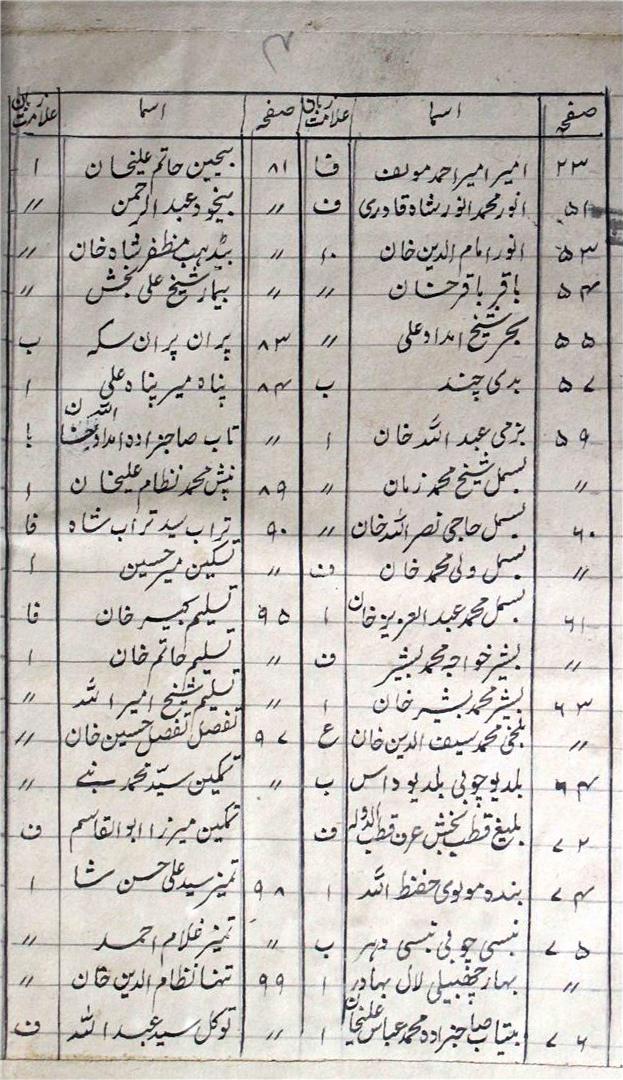 ۲
صفحہ اسما علامت زبان صفحہ اسما علامت زبان
۲۳ امیر امیر احمد مولف فا ۸۱ بیجین حاتم علیخان ا
۵۱ انور محمد انور شاہ قادری ف // بیخود عبد الرحمن //
۵۳ انور امام الدین خان ا // بیڈہب مظفر شاہ خان //
۵۴ باقر باقر خان // // بیمار شیخ علی بخش //
۵۵ بحر شیخ امداد علی // ۸۳ پران پران سکہ ب
۵۷ بدی چند ب ۸۴ پناہ میر پناہ علی ا
۵۹ بزمی عبد اللہ خان ا // تاب صاحبزادہ امداد اللہ خان
// بسمل شیخ محمد زمان // ۸۹ تپش محمد نظام علیخان ا
۶۰ بسمل حاجی نصر اللہ خان // ۹۰ تراب سید تراب شاہ فا
// بسمل ولی محمد خان ف // تسکین میر حسین ا
۶۱ بسمل محمد عبد العزیز خان ا ۹۵ تسلیم کبیر خان فا
// بشیر خواجہ محمد بشیر ف // تسلیم حاتم خان ا
۶۳ بشیر محمد بشیر خان ا // تسلیم شیخ امیر اللہ //
// بلخی محمد سیف الدین خان ع ۹۷ تفضل تفضل حسین خان //
۶۴ بلدیو چوبی بلدیو داس ب // تمکین سید محمد نبے //
۷۲ بلیغ قطب بخش عرف قطب الدولہ ف تمکین میرزا ابو القاسم ف
۷۴ بندہ مولوی حفظ اللہ ا ۹۸ تمیز سید علی حسن شا ا
۷۵ بنسی چوبی بنسی دہر ب // تمیز غلام احمد //
// بہار چھبیلی لال بہادر ا ۹۹ تنہا نظام الدین خان //
۷۶ بیتاب صاحبزادہ محمد عباس علیخان ا // توکل سید عبد اللہ ف